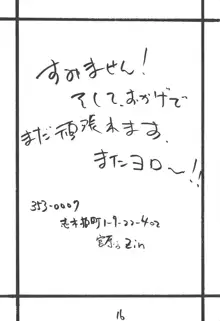 すみません!
そして、おかげで
まだ頑張れます。
またヨロ〜!!
353-0007
志木柏町1-9-22-402
宮原 Zin
16